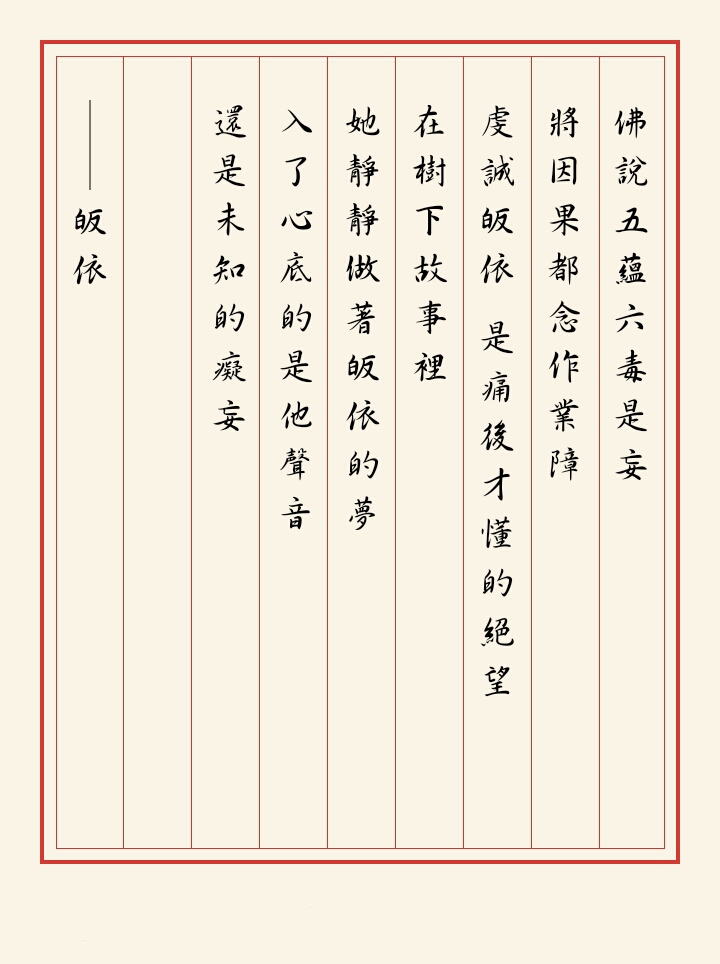 佛說五蘊六毒是妄
將因果都念作業障
虔誠皈依 是痛後才懂的絕望
在樹下故事裡
她靜靜做著皈依的夢
入了心底的是他聲音
還是未知的癡妄
——皈依